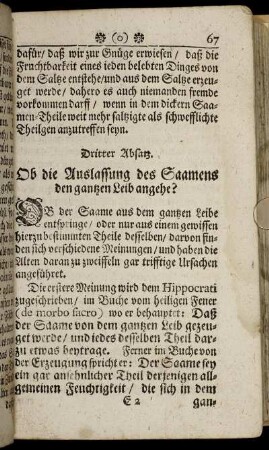 (o) 67
dafür/ daß wir zur Gnüge erwiesen/ daß die
Fruchtbarkeit eines ieden belebten Dinges von
dem Saltze entstehe/und aus dem Saltze erzeu-
get werde/ dahero es auch niemanden fremde
vorkommen darff/ wenn in dem dickern Saa-
men-Theile weit mehr saltzigte als schwefflichte
Theilgen anzutreffen seyn.
Dritter Absatz.
Ob die Auslassung des Saamens
den gantzen Leib angehe?
OB der Saame aus dem gantzen Leibe
entspringe/ oder nur aus einem gewissen
hierzu bestimmten Theile desselben/ darvon fin-
den sich verschiedene Meinungen/ und haben die
Alten daran zu zweiffeln gar trifftige Ursachen
angeführet.
Die erstere Meinung wird dem Hippocrati
zugeschrieben/ im Buche vom heiligen Feuer
(de morbo sacro) wo er behauptet: Daß
der Saame von dem gantzen Leib gezeu-
get werde/ und iedes desselben Theil dar-
zu etwas beytrage. Ferner im Buche von
der Erzeugung spricht er: Der Saame sey
ein gar ansehnlicher Theil derjenigen all-
gemeinen Feuchtigkeit/ die sich in dem
E 2 gan-